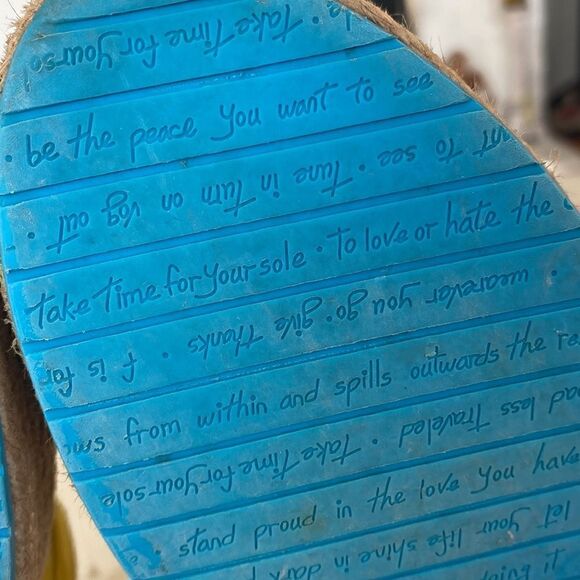 Take Time for your
· be the peace you want to see
to see · Tune in turn on vog out ·
Take Time for your sole · To love or hate the
· wearever you go · give thanks · f is for
from within and spills outwards the
less Traveled · Take Time for your sole
· stand proud in the love you have
let your life shine in